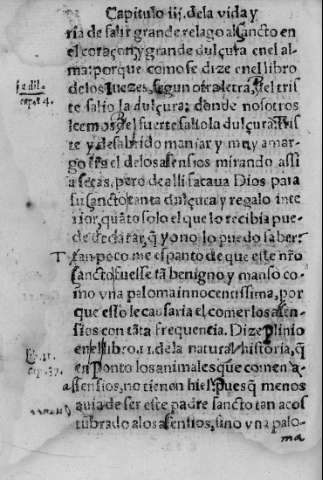 Capitulo iij. dela vida y
ria de salir grande regalo al sancto en
el coraçon, y grande dulçura enel al
ma: porque como se dize enel libro
delos Iuezes, segun otra letra, Del tris
te salio la dulçura: donde nosotros
leemos, Del fuerte salio la dulçura. Tris
te y desabrido manjar y muy amar
go es el delos asensios mirando assi
a secas, pero de alli sacaua Dios para
su sancto tanta dulçura y regalo inte
rior, quãto solo el que lo recibia pue-
de declarar, q̃ yo no lo puedo saber.
Tan poco me espanto de que este nr̃o
sancto fuesse tã benigno y manso co-
mo vna paloma innocentissima, por
que esto le causaria el comer los asen-
sios con tãta frequencia. Dize Plinio
enel libro. 11. dela natural historia, q̃
en Ponto los animales que comen a-
asensios, no tienen hiel. Pues q̃ menos
auia de ser este padre sancto tan acos
tũbrado alos asensios, sino vna palo-
ma
capi. 4.